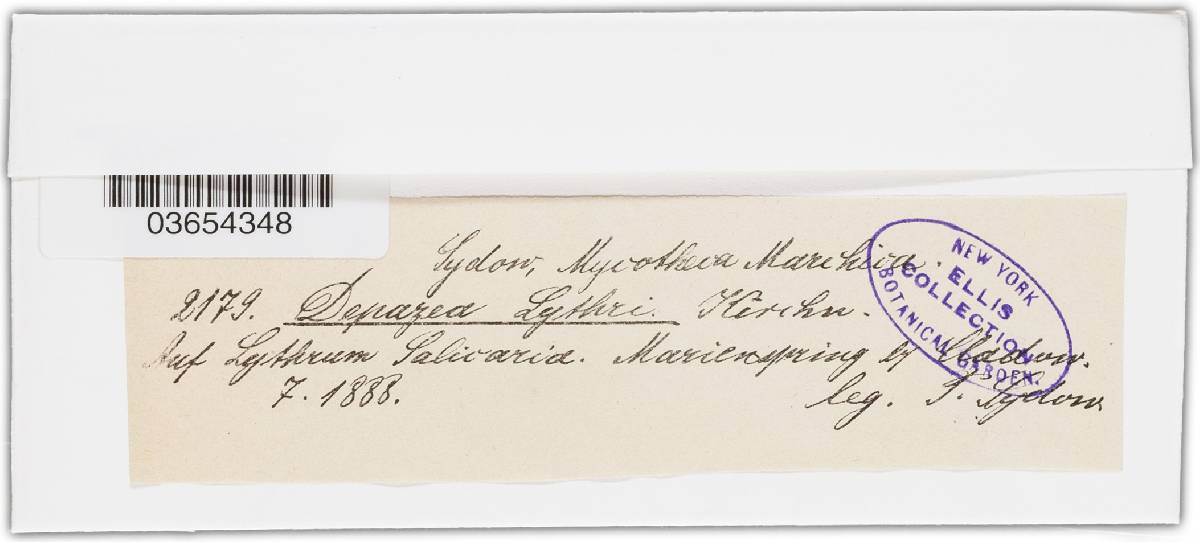 03654348
Sydow, Mycotheca Marchica.
2179. Depazea Lythri. Kirchn.
Auf Lythrum Salicaria. Marienspring b/ Cladow.
7. 1888.
leg. P. Sydow
NEW YORK
ELLIS
COLLECTION
BOTANICAL GARDEN.